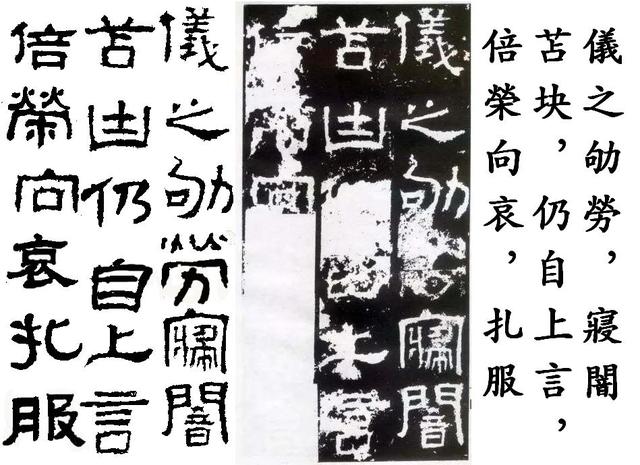 儀之劬勞，寢闇
苫块，仍自上言，
倍榮向哀，扎服
儀之劬寢闇
苫凷言
倍向
儀之劬勞寢闇
苫凷仍自上言
倍榮向哀扎服